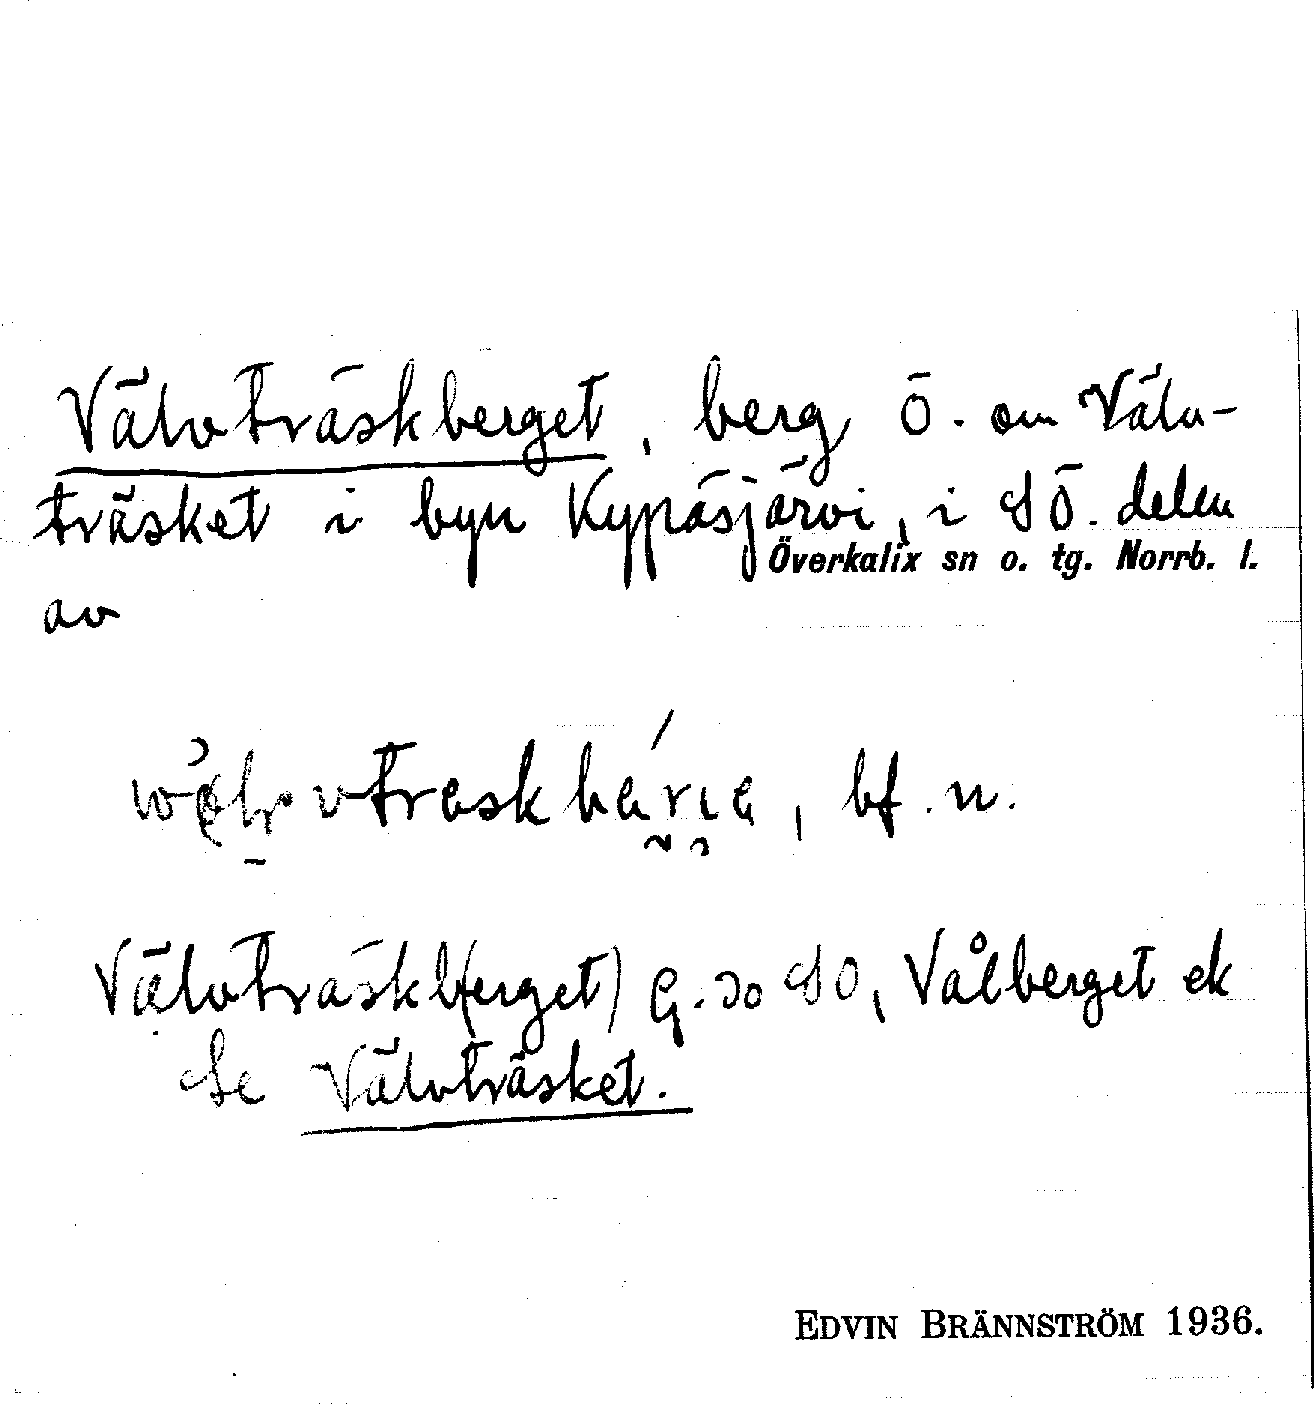 Välvträskberget, berg Ö. om Välv-
träsket i byn Kypäsjärvi, i SÖ. delen
Överkalix sn o. tg. Norrb. l.
av
bf. n.
Välvträskb(erget) G. SO, Vålberget ek
Se Välvträsket.
EDVIN BRÄNNSTRÖM 1936.